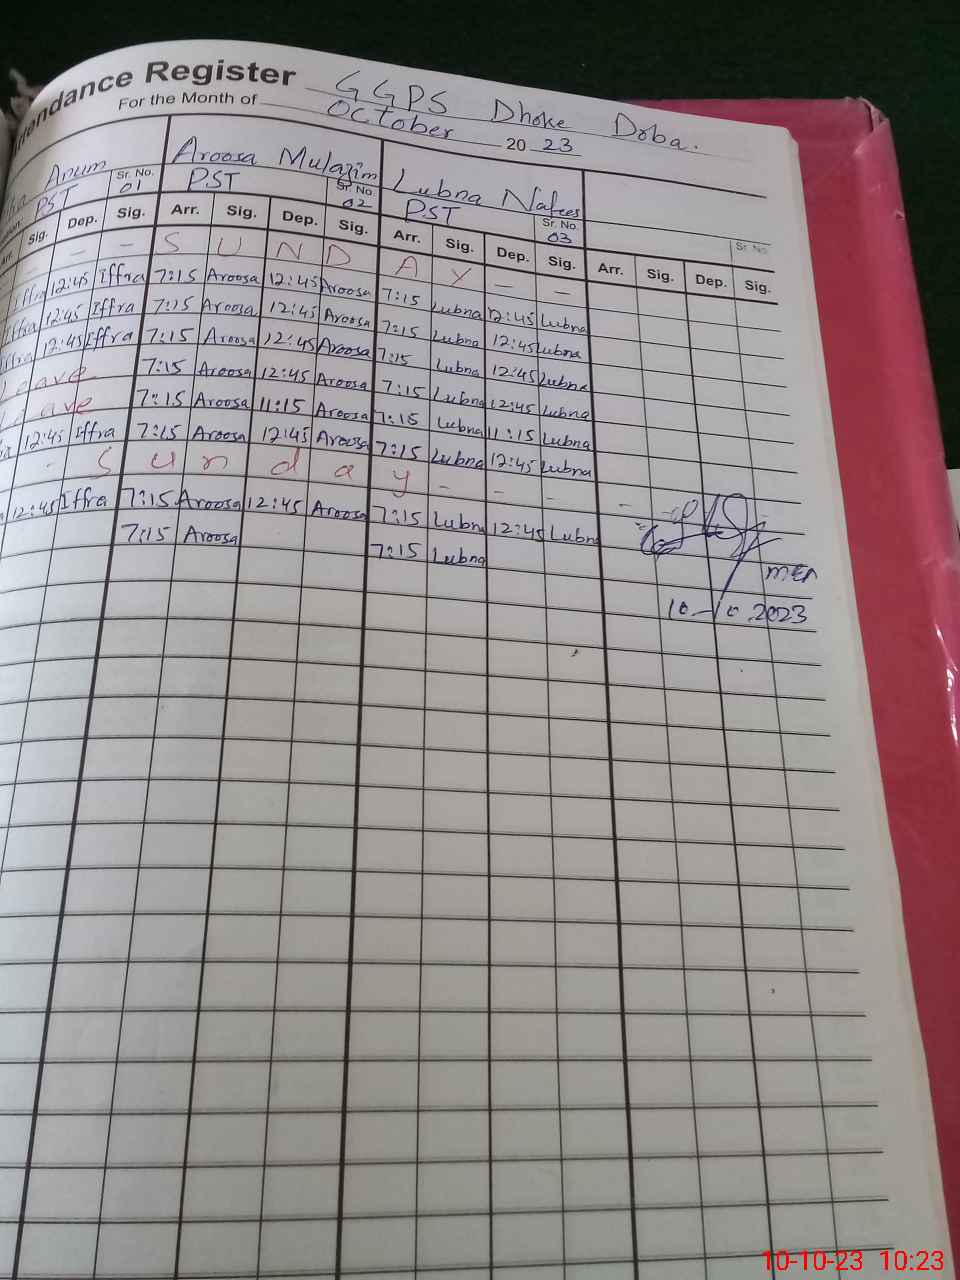 Attendance Register GGPS Dhoke Doba.
For the Month of October 20 23
Anum Aroosa Mulazim Lubna Nafees
PST Sr. No. 01 PST Sr. No. 02 PST Sr. No. 03 Sr. No.
Arr. Sig. Dep. Sig. Arr. Sig. Dep. Sig. Arr. Sig. Dep. Sig. Arr. Sig. Dep. Sig.
- - - S U N D A Y - -
Iffra 12:45 Iffra 7:15 Aroosa 12:45 Aroosa 7:15 Lubna 12:45 Lubna
Iffra 12:45 Iffra 7:15 Aroosa 12:45 Aroosa 7:15 Lubna 12:45 Lubna
Iffra 12:45 Iffra 7:15 Aroosa 12:45 Aroosa 7:15 Lubna 12:45 Lubna
Leave 7:15 Aroosa 12:45 Aroosa 7:15 Lubna 12:45 Lubna
Leave 7:15 Aroosa 11:15 Aroosa 7:15 Lubna 11:15 Lubna
12:45 Iffra 7:15 Aroosa 12:45 Aroosa 7:15 Lubna 12:45 Lubna
- S u n d a y - - - -
12:45 Iffra 7:15 Aroosa 12:45 Aroosa 7:15 Lubna 12:45 Lubna
7:15 Aroosa 7:15 Lubna
10-10.2023
10-10-23 10:23